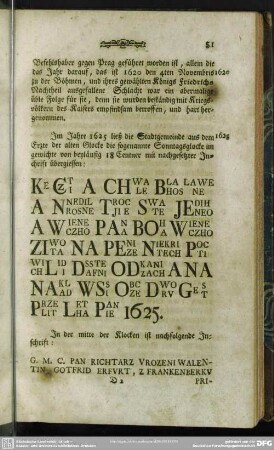 81
Befehlshaber gegen Prag geführet worden ist, allein die
das Jahr darauf, das ist 1620 den 4ten Novembris 1620
zu der Böhmen, und ihres gewählten Königs Friederichs
Nachtheil ausgefallene Schlacht war ein abermaliges
üble Folge für sie, denn sie wurden beständig mit Kriegs-
völkern des Kaisers empfindsam betroffen, und hart her-
genommen.
Im Jahre 1625 ließ die Stadtgemeinde aus dem 1625
Erzte der alten Glocke die sogenannte Sonntagsglocke an
gewichte von beyläufig 18 Centner mit nachgesetzter In-
schrift übergiessen:
A CHWA BLA LAWE
LE BHOS NE
A NNEDIL TROC SWA JEDIH
NROSNE TJIE STE NEO
A WIENE PAN BOH A WIENE
WCZHO WCZHO
ZIWO NA PENI NIEKRI POC
TA ZE TECH TI
WILID DSSTE ODKANI ANA
CHLI DAFNI ZACH
NAKL WSI OBC DWO GES
AAD ZE RV T
PRZE LET PAN 1625.
LIT LHA PIE
In der mitte der Klocken ist nachfolgende In-
schrift:
G. M. C. PAN RICHTARZ VROZENI WALEN-
TIN GOTFRID ERFVRT, Z FRANKENBERKV
D 2
PRI-